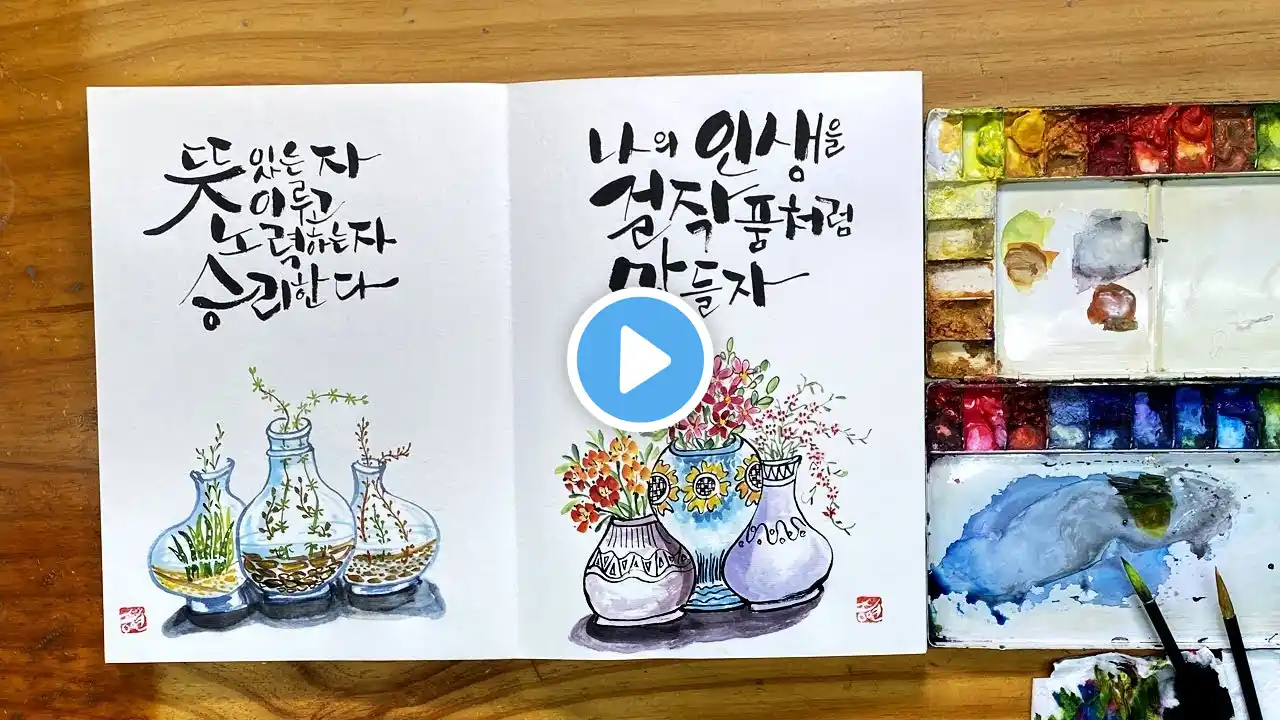 뜻있는 자
이루고
노력하는자
승리한다
나의 인생을
걸작품처럼
만들자